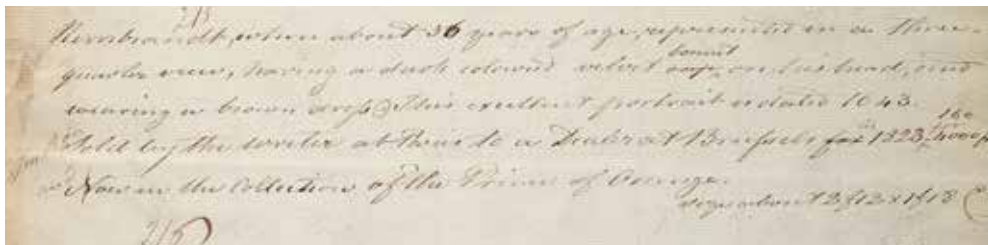 213
Rembrandt, when about 36 years of age, represented in a three-
quarter view, having a dark colored velvet cap bonnet on his head, and
wearing a brown dress. This excellent portrait is dated 1643.
Sold by the writer to a Dealer at Brussels for 1823, 160 4000f
Now in the Collection of the Prince of Orange.
size about 2f 2 x 1f 8